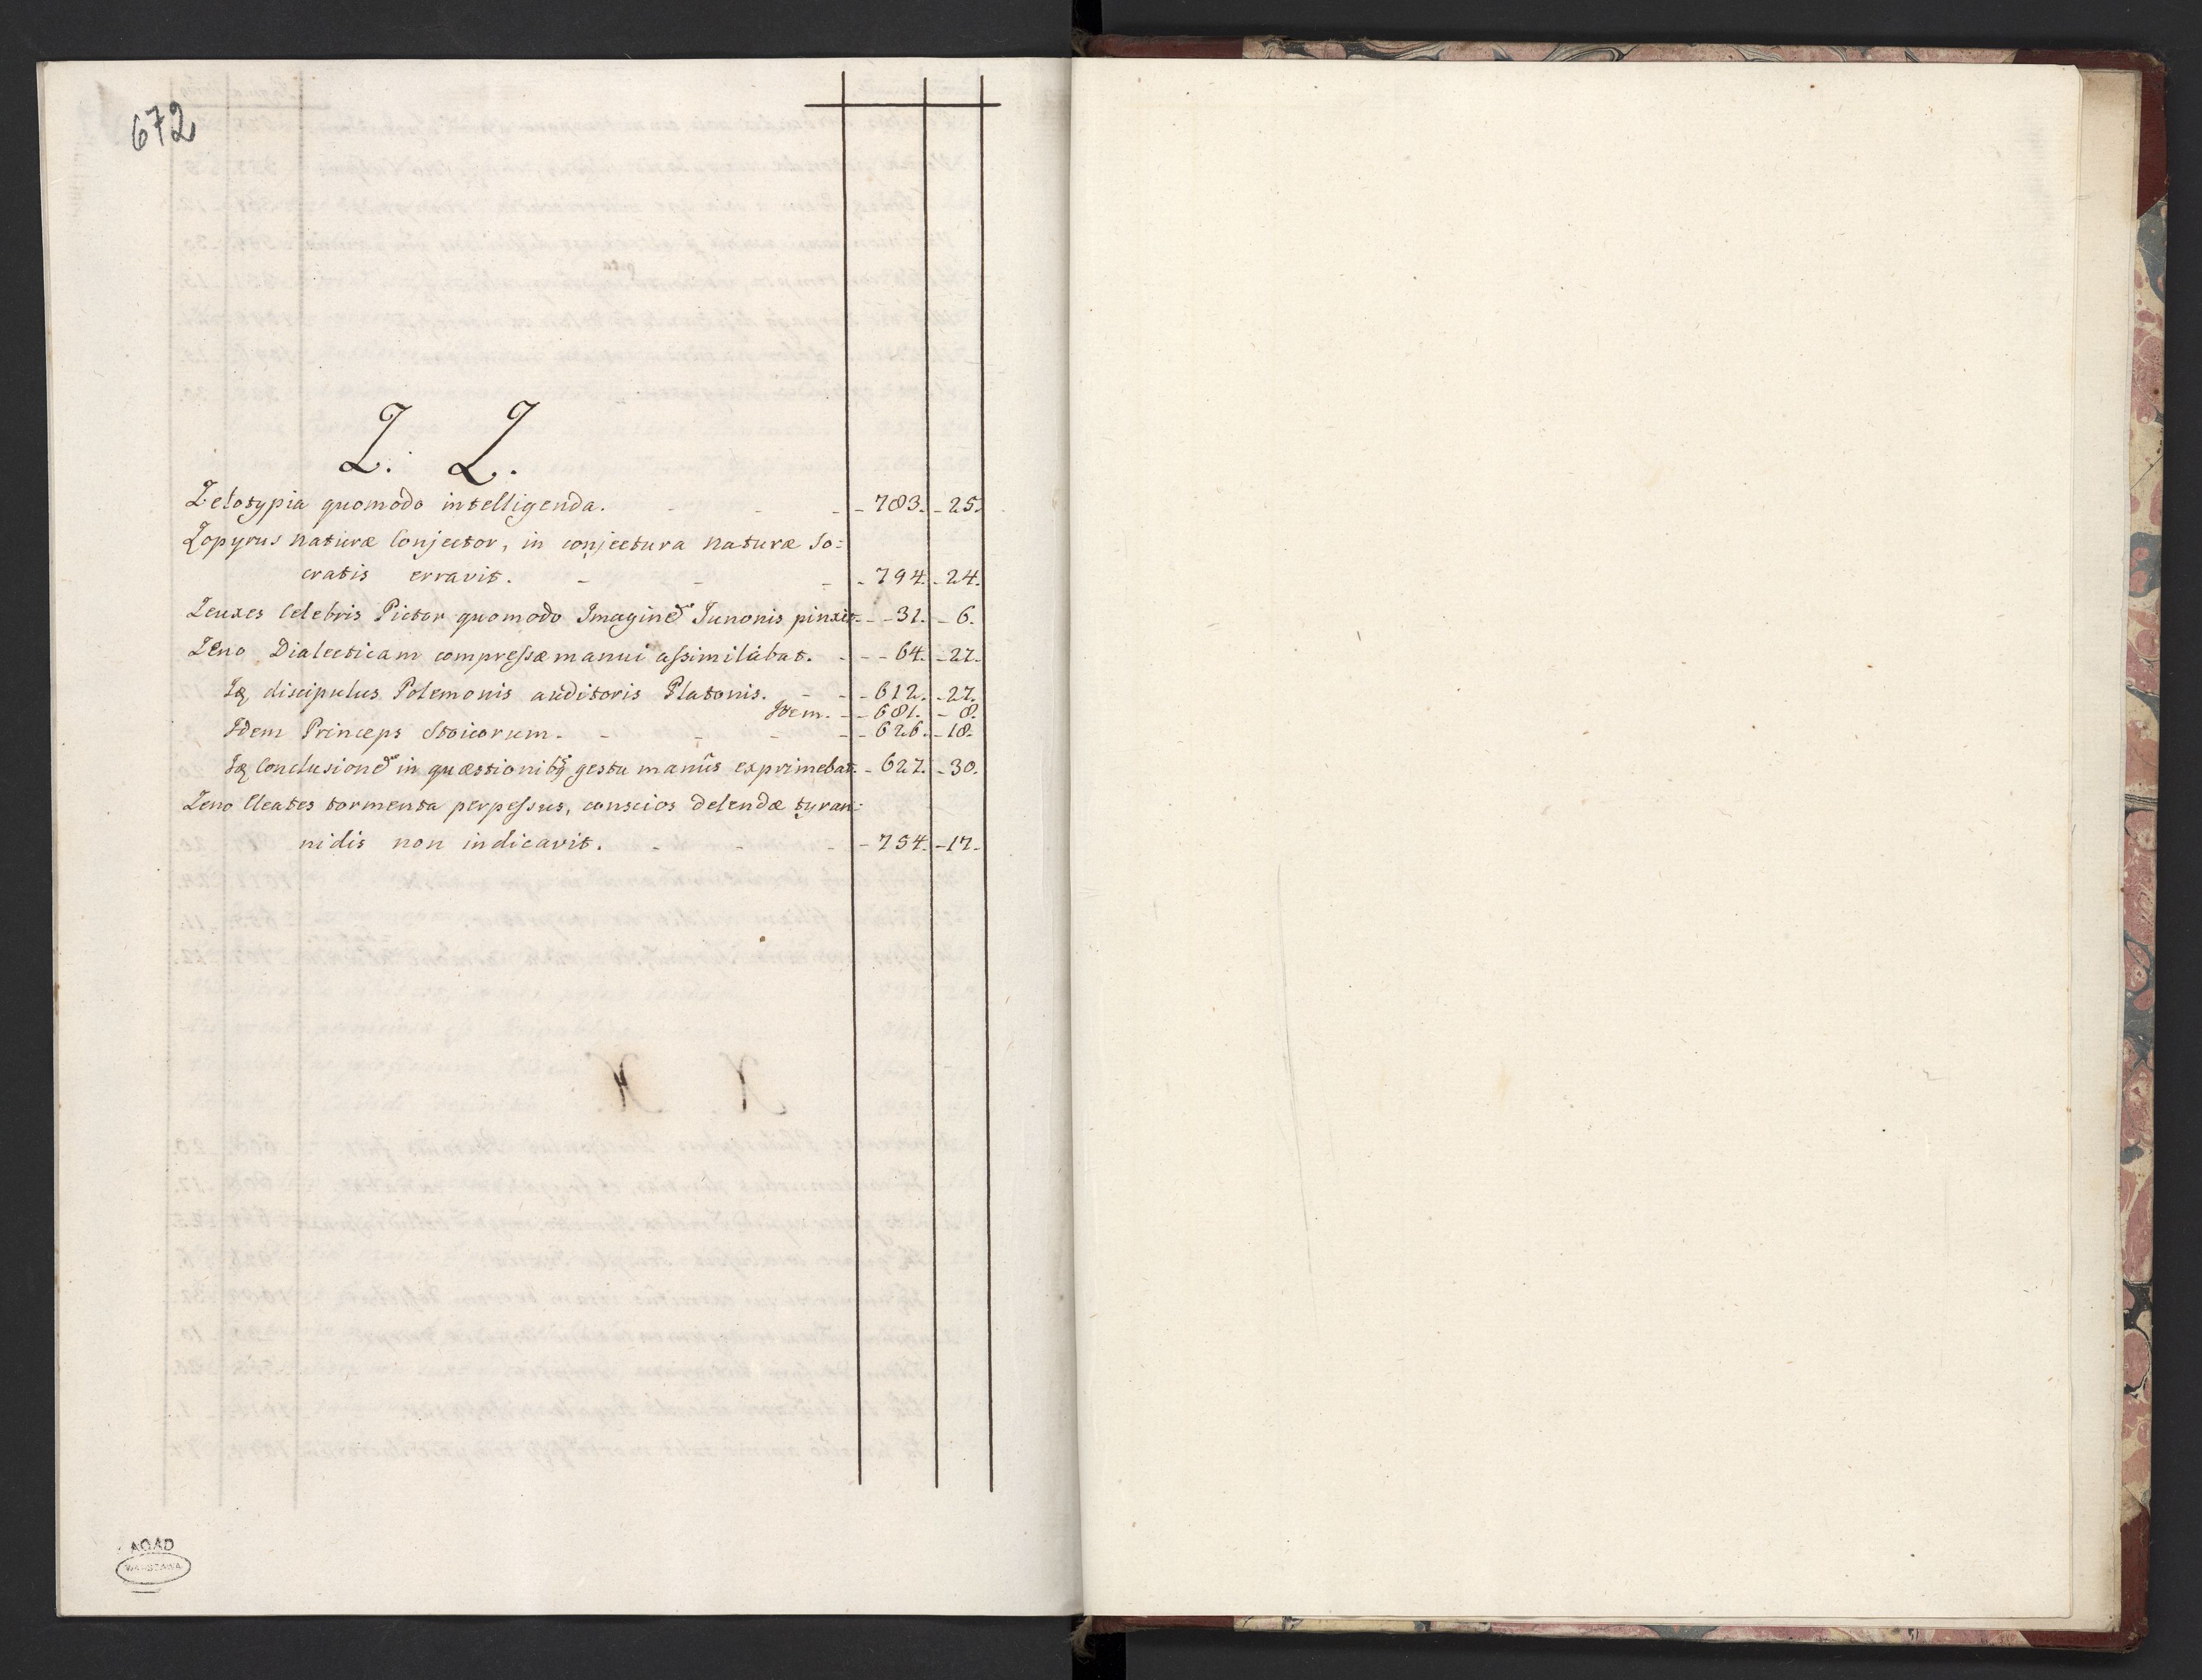 672
Z. Z.
Zelotypia quomodo intelligenda. - - - - 783. - 25.
Zopyrus naturæ Conjector, in conjectura naturæ So:
cratis erravit. - - - - 794. - 24.
Zeuxes Celebris Pictor quomodo Imaginē Junonis pinxit. - - 31. - 6.
Zeno Dialecticam compressæ manui assimilabat. - - - 64. - 27.
Idē discipulus Polemonis auditoris Platonis. - - - 612. - 27.
Idem. - - 681. - 8.
Idem Princeps Stoicorum. - - - - - 626. - 18.
Idē Conclusionē in quæstionibq gestu manûs exprimebat. - 627. - 30.
Zeno Cleates tormenta perpessus, conscios delendæ tyran:
nidis non indicavit. - - - - 754. - 17.
AGAD
WARSZAWA